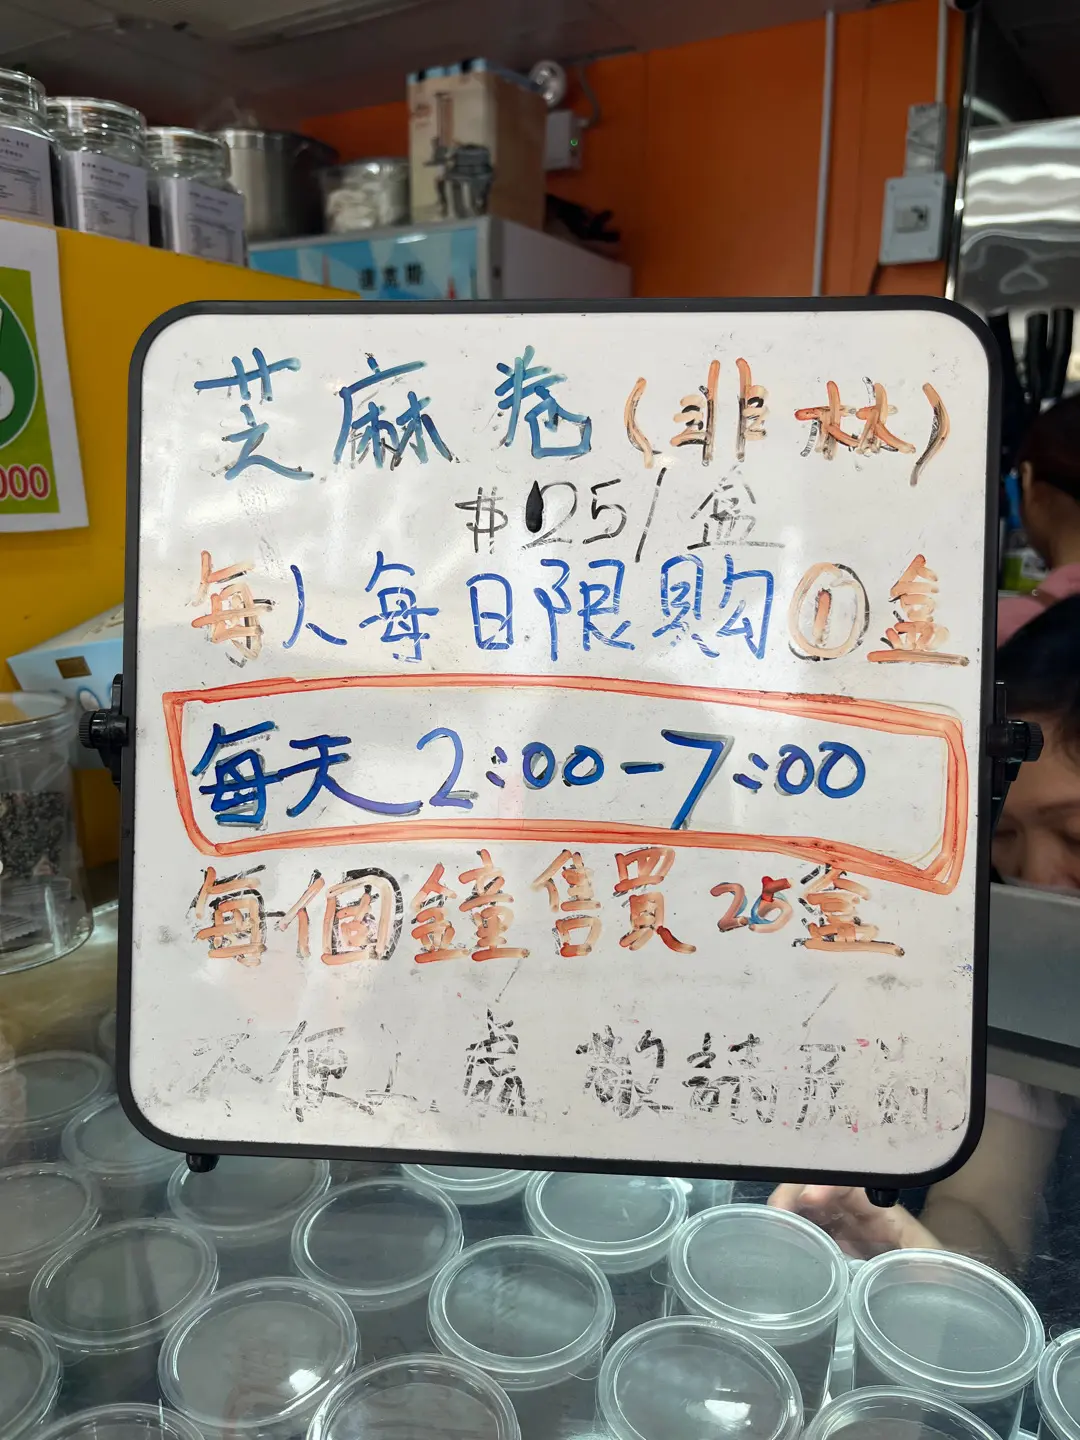 000
芝麻卷(非林)
$25/盒
每人每日限購①盒
每天 2:00-7:00
每個鐘售買 25盒
不便之處 敬請原諒